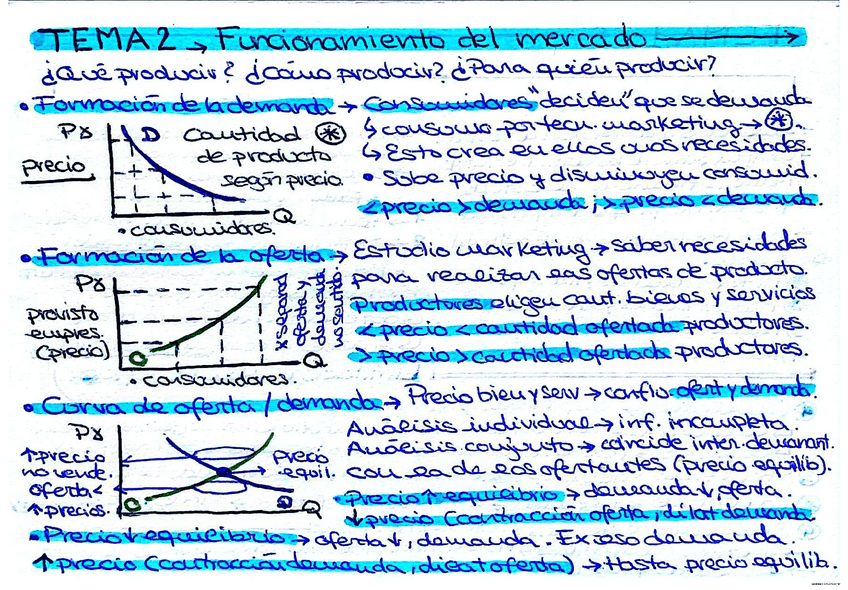 TEMA 2 → Funcionamiento del mercado →
¿Qué producir? ¿Cómo producir? ¿Para quién producir?
• Formación de la demanda → Consumidores "deciden" que se demanda
↳ consumo por tecn. marketing → ✱.
↳ Esto crea en ellos unas necesidades.
• Sube precio y disminuyen consumid.
< precio > demanda ; > precio < demanda.
Px
D
precio
Cantidad ✱
de producto
según precio.
Q
• consumidores.
• Formación de la oferta → Estudio marketing → saber necesidades
para realizar las ofertas de producto.
Productores eligen cant. bienes y servicios
< precio < cantidad ofertada productores.
> precio > cantidad ofertada productores.
Px
previsto
empres.
(precio)
O
Q
x separad
oferta y
demanda
no sentido.
• consumidores.
• Curva de oferta / demanda → Precio bien y serv → conflu. ofert y demand.
Análisis individual → inf. incompleta.
Análisis conjunto → coincide inter. demanant.
con la de los ofertantes (precio equilib).
Px
↑ precio
no vende.
oferta <
↑ precios.
precio
equil.
O
D
Q
• Precio ↑ equilibrio → demanda ↓, oferta.
↓ precio (contracción oferta, dilat demanda
• Precio ↓ equilibrio → oferta ↓, demanda. Exceso demanda.
↑ precio (contracción demanda, dilat oferta) → Hasta precio equilib.